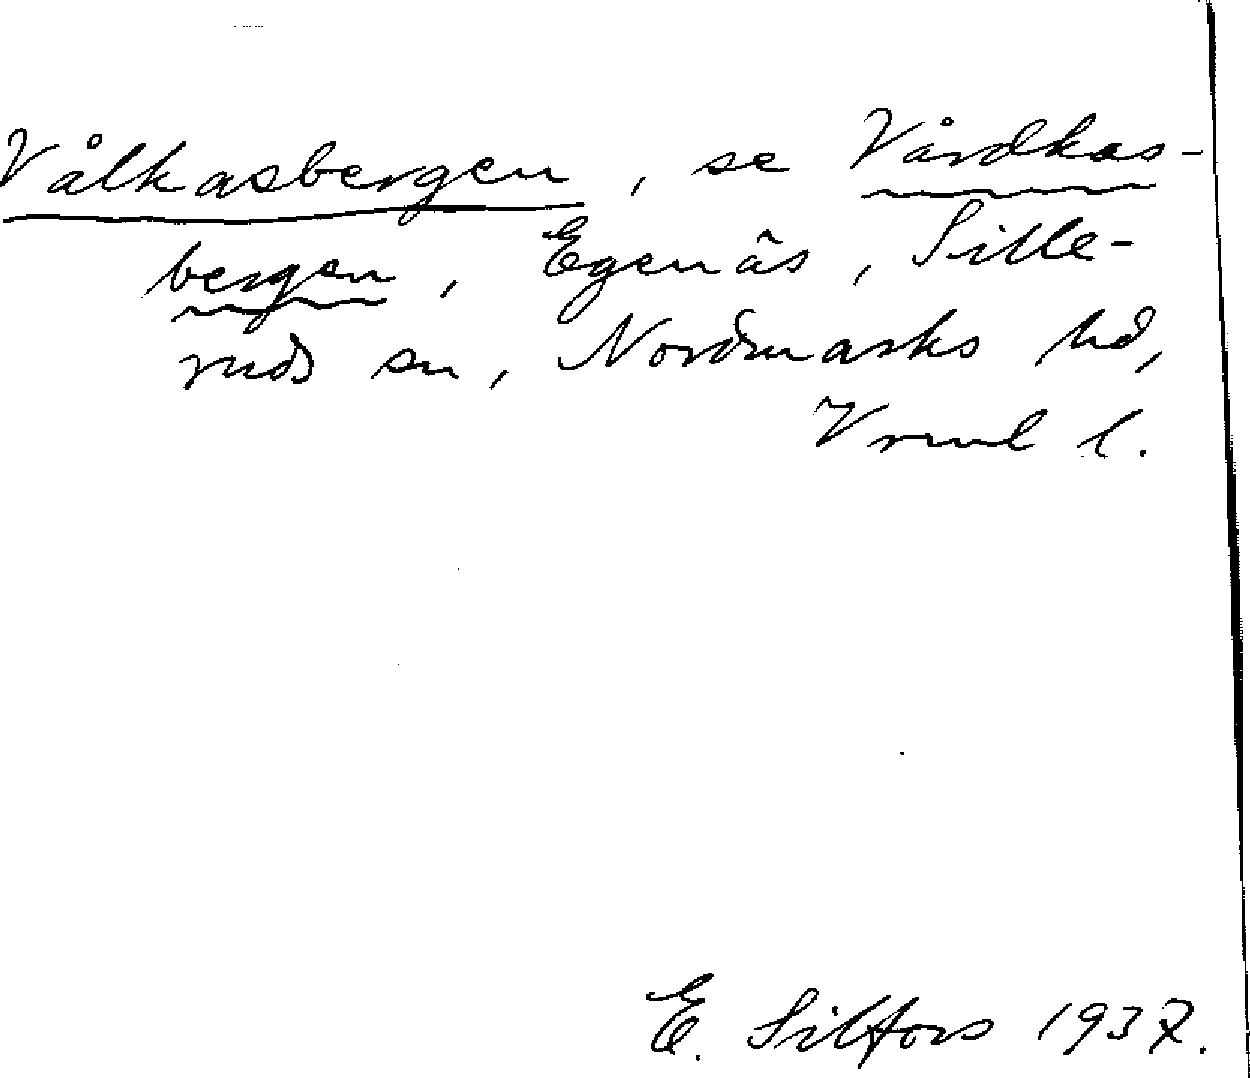 Vålkasbergen, se Vårdkas-
bergen, Egenäs, Sille-
ruds sn, Nordmarks hd,
Vrml l.
E. Silfors 1937.